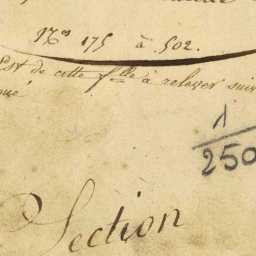 Nos 175 à 502.
Est de cette flle à relever suiv
1/250
Section